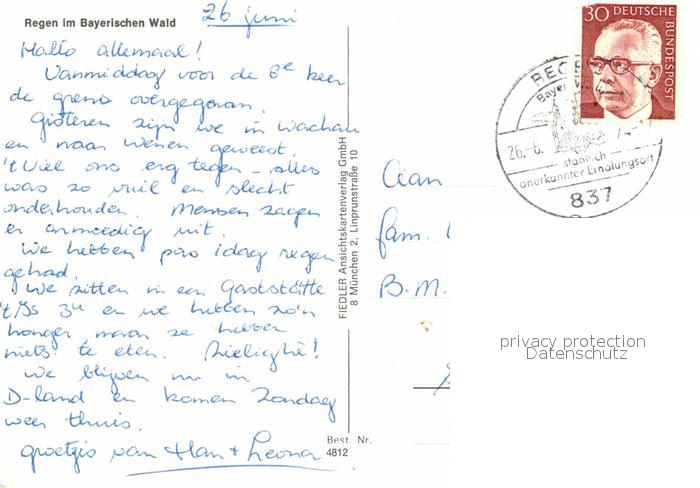 Regen im Bayerischen Wald
26 juni
Hallo allemaal!
Vanmiddag voor de 8e keer
de grens overgegaan.
Gisteren zijn we in Wachau
en naar Wenen geweest.
't Viel ons erg tegen - alles
was zo vuil en slecht
onderhouden. Mensen zagen
er armoedig uit.
We hebben pas 1 dag regen
gehad.
We zitten in een Gaststätte
't Is 3u en we hebben zo'n
honger maar ze hebben
niets te eten. Zielighè!
We blijven nu in
D-land en komen Zondag
weer thuis.
groetjes van Han + Leona
FIEDLER Ansichtskartenverlag GmbH
8 München 2, Linprunstraße 10
Best. Nr.
4812
30 DEUTSCHE
BUNDESPOST
REGE
Bayer
26.-6.
staatlich
anerkannter Erholungsort
837
Aan
fam.
B.M.
privacy protection
Datenschutz